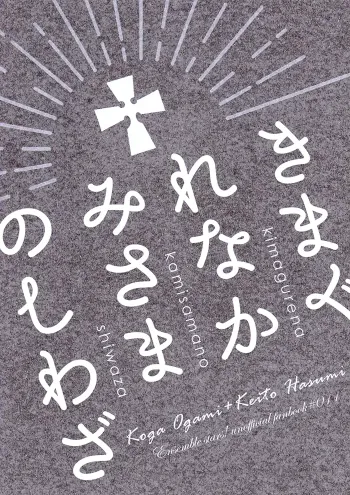 きまぐ
れなか
みさま
のしわざ
kimagurena
kamisamano
shiwaza
Koga Ogami + Keito Hasumi
Ensemble stars! unofficial fanbook #011